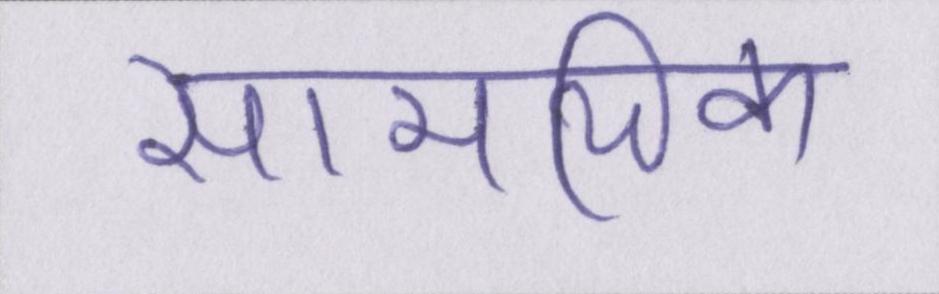 सामयिक